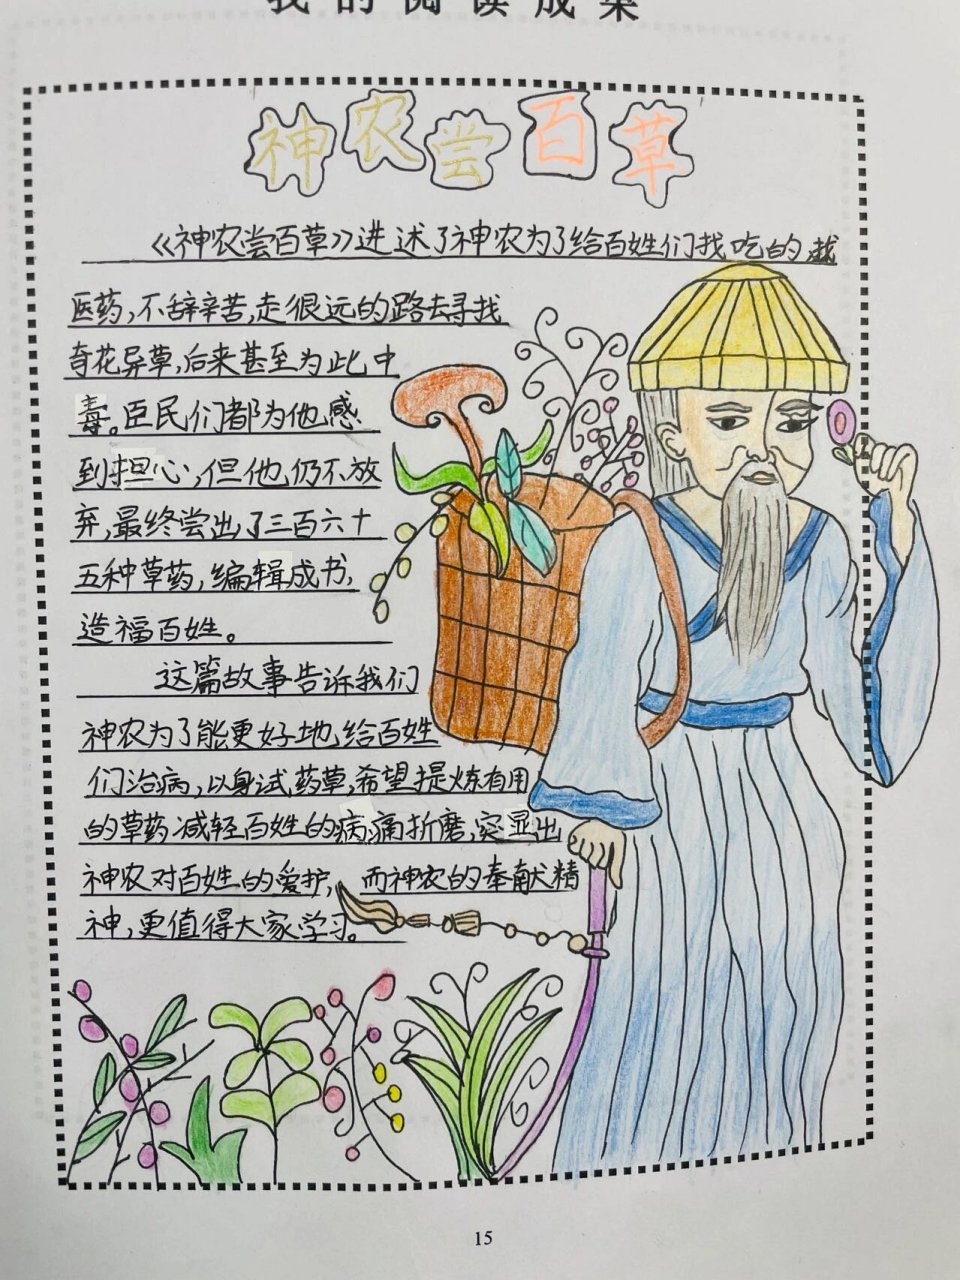 我的阅读成集
神农尝百草
《神农尝百草》进述了神农为了给百姓们找吃的找
医药,不辞辛苦,走很远的路去寻找
奇花异草,后来甚至为此中
毒。臣民们都为他感
到担心,但他仍不放
弃,最终尝出了三百六十
五种草药,编辑成书,
造福百姓。
这篇故事告诉我们
神农为了能更好地给百姓
们治病,以身试药草,希望提炼有用
的草药减轻百姓的病痛折磨,突显出
神农对百姓的爱护,而神农的奉献精
神,更值得大家学习。
15